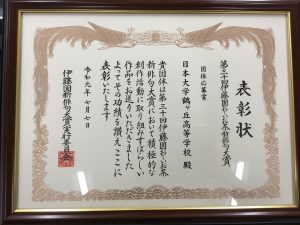 表彰状
第三十回伊藤園お〜いお茶新俳句大賞
団体応募賞
日本大学鶴ヶ丘高等学校 殿
貴団体は第三十回伊藤園お〜いお茶
新俳句大賞において積極的な
創作活動に取り組みすばらしい
作品をお送りいただきました
よってその功績を讃えここに
表彰いたします
令和元年七月七日
伊藤園新俳句大賞実行委員会